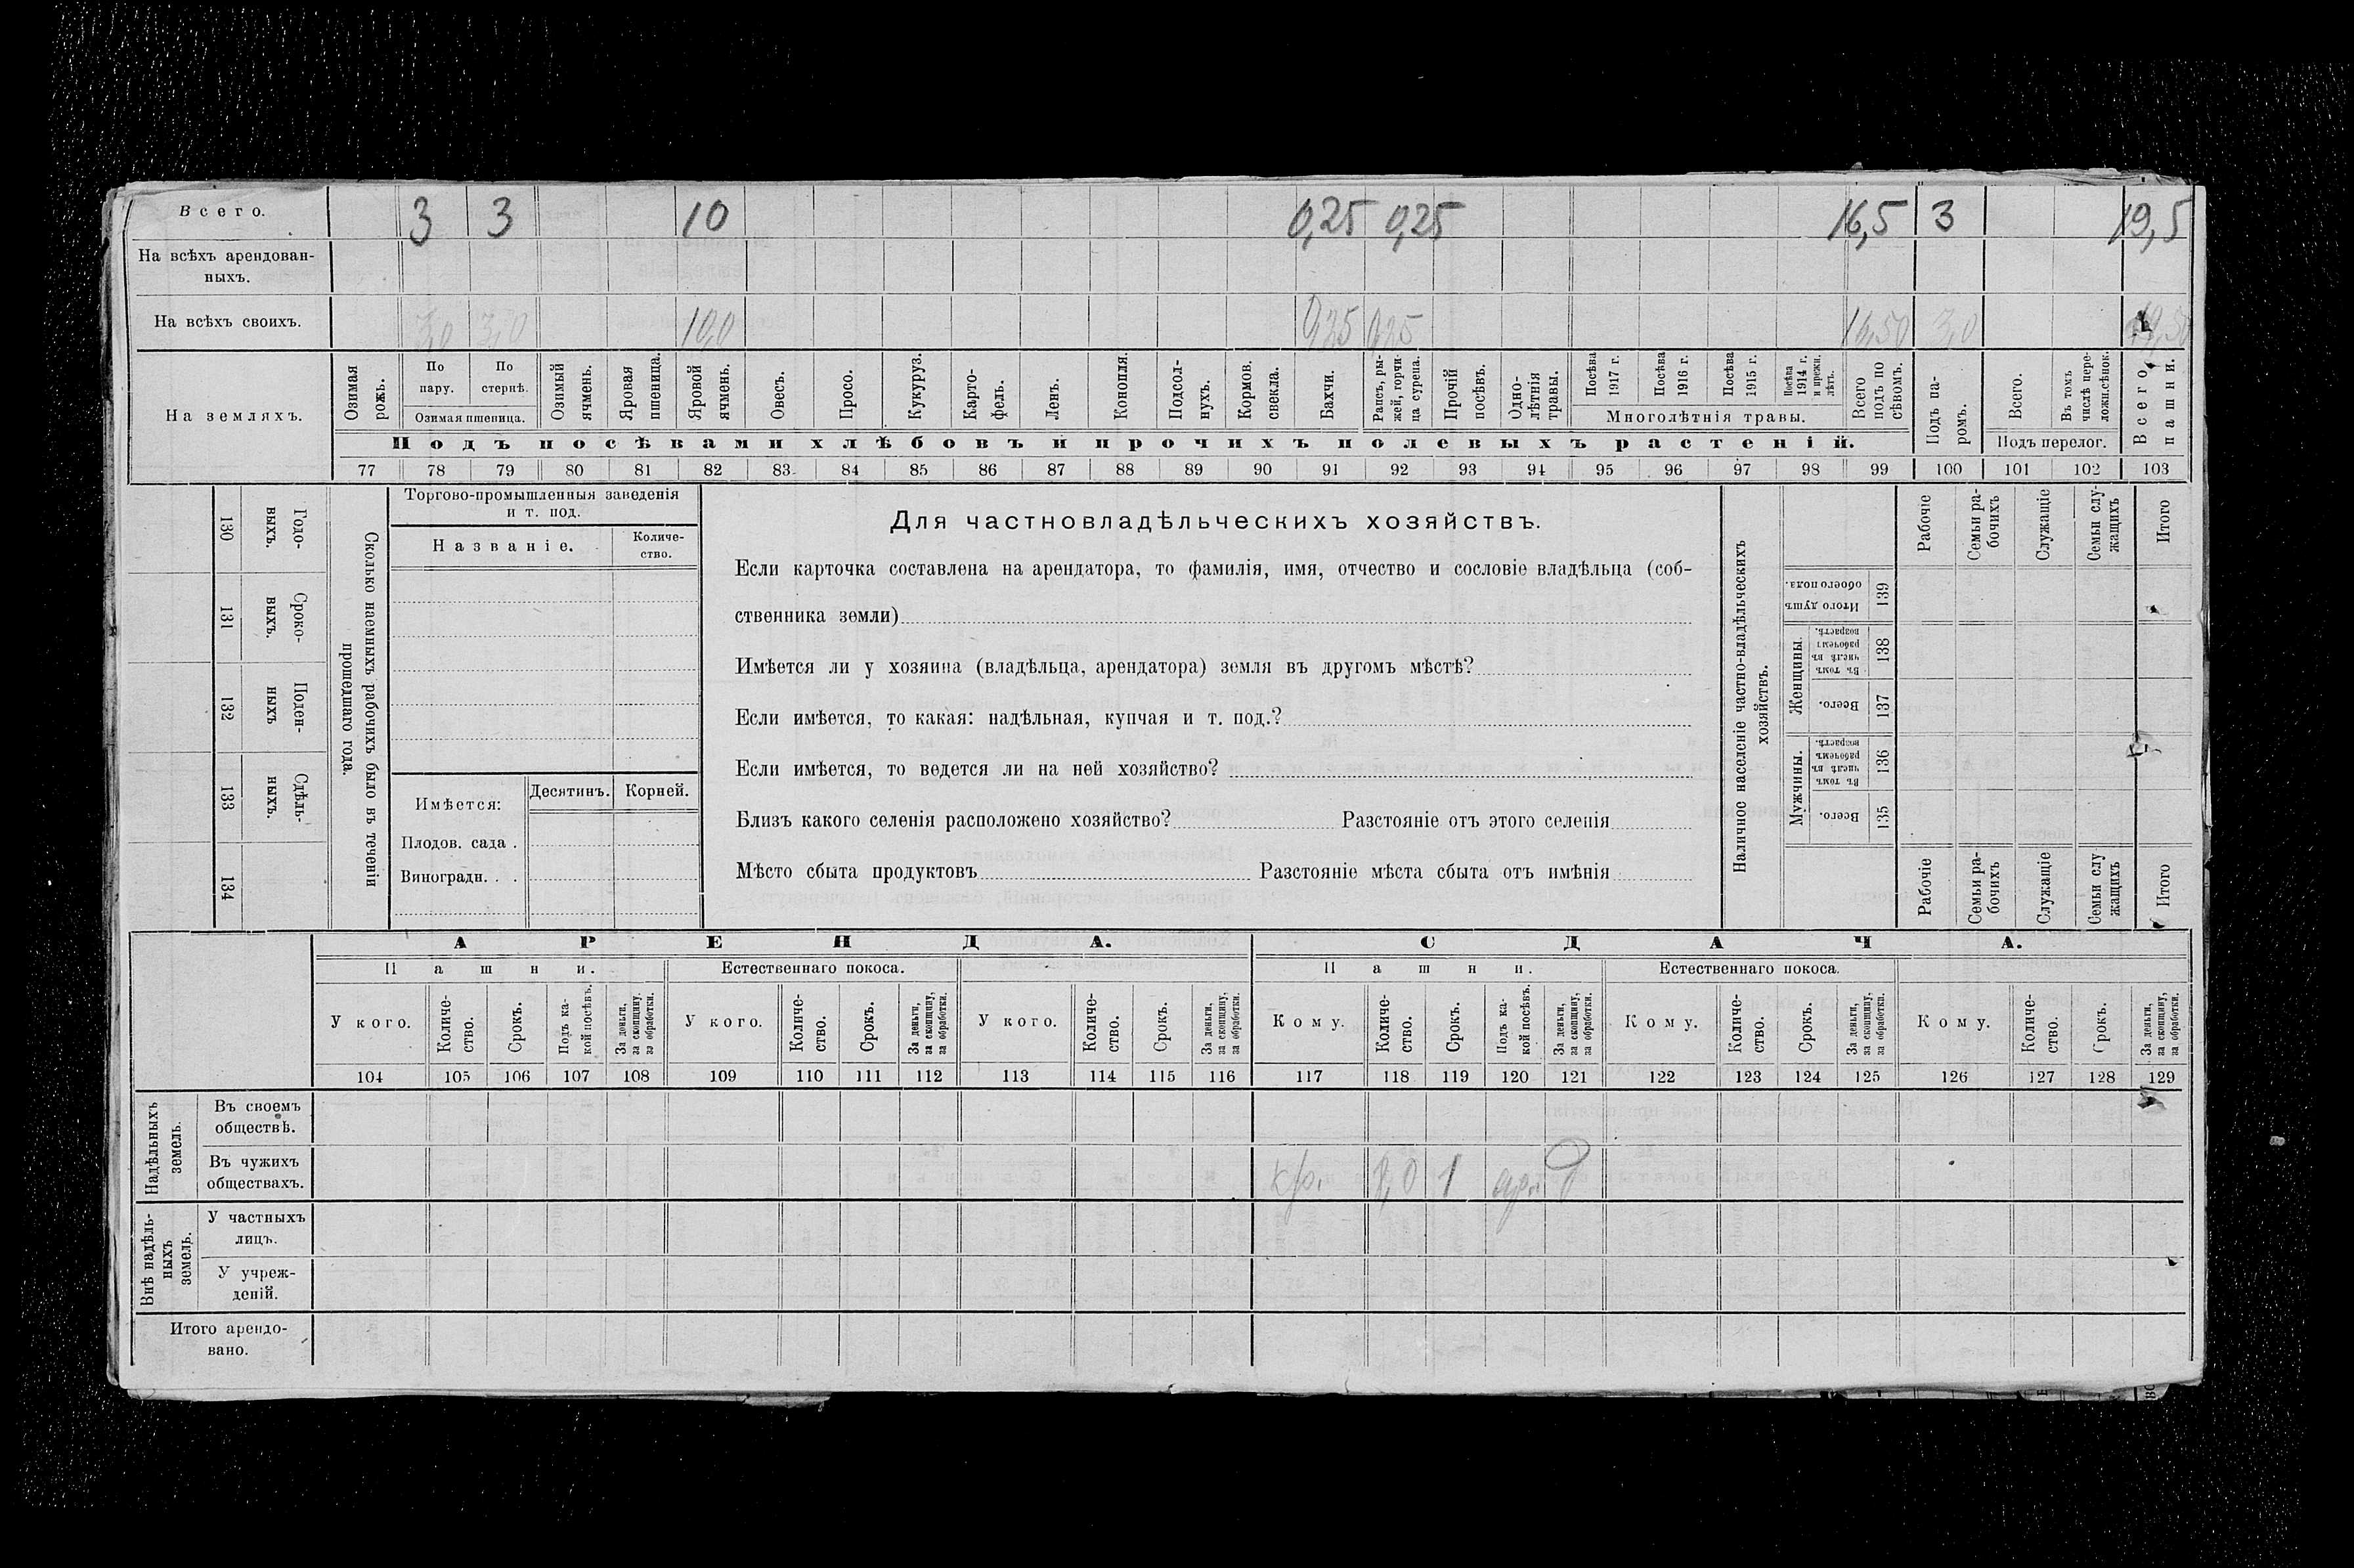 Всего. 3 3 10 0,25 0,25 16,5 3 19,5
На всѣхъ арендован-
ныхъ.
На всѣхъ своихъ. 3,0 3,0 10,0 0,25 0,25 16,50 3,0 19,50
На земляхъ.
Озимая рожь.
По пару.
По стернѣ.
Озимая пшеница.
Озимый ячмень.
Яровая пшеница.
Яровой ячмень.
Овесъ.
Просо.
Кукуруз.
Карто-
фель.
Ленъ.
Конопля.
Подсол-
нухъ.
Кормов. свекла.
Бахчи.
Рапсъ, ры-
жей, горчи-
ца сурепа.
Прочій посѣвъ.
Одно-
лѣтнія
травы.
Посѣва 1917 г.
Посѣва 1916 г.
Посѣва 1915 г.
Посѣва 1914 г. и прежн. лѣтъ.
Многолѣтнія травы.
Всего подъ по
сѣвомъ.
Подъ посѣвами хлѣбовъ и прочихъ полевыхъ растеній.
Подъ па-
ромъ.
Всего.
Въ томъ числѣ пере-
ложн.сѣнок.
Подъ перелог.
Всего пашни.
77 78 79 80 81 82 83 84 85 86 87 88 89 90 91 92 93 94 95 96 97 98 99 100 101 102 103
130 Годо-
выхъ.
131 Сроко-
выхъ.
132 Поден-
ныхъ
133 Сдѣль-
ныхъ.
134
Сколько наемныхъ рабочихъ было въ теченіи
прошедшаго года.
Торгово-промышленныя заведенія
и т. под.
Названіе.
Количе-
ство.
Имѣется:
Десятинъ. Корней.
Плодов. сада .
Виноградн. . .
Для частновладѣльческихъ хозяйствъ.
Если карточка составлена на арендатора, то фамилія, имя, отчество и сословіе владѣльца (соб-
ственника земли)
Имѣется ли у хозяина (владѣльца, арендатора) земля въ другомъ мѣстѣ?
Если имѣется, то какая: надѣльная, купчая и т. под.?
Если имѣется, то ведется ли на ней хозяйство?
Близъ какого селенія расположено хозяйство? Разстояніе отъ этого селенія
Мѣсто сбыта продуктовъ Разстояніе мѣста сбыта отъ имѣнія
Наличное населеніе частно-владѣльческихъ
хозяйствъ.
Рабочіе
Семьи ра-
бочихъ
Служащіе
Семьи слу-
жащихъ
Итого
Итого душъ
обоего пола. 139
Женщины.
Въ томъ числѣ въ рабочемъ возрастѣ. 138
Всего. 137
Мужчины.
Въ томъ числѣ въ рабочемъ возрастѣ. 136
Всего. 135
Рабочіе
Семьи ра-
бочихъ
Служащіе
Семьи слу
жащихъ
Итого
АРЕНДА. СДАЧА.
Пашни. Естественнаго покоса. Пашни. Естественнаго покоса.
У кого.
Количе-
ство.
Срокъ.
Подъ ка-
кой посѣвъ.
За деньги,
за скопщину,
за обработки.
У кого.
Количе-
ство.
Срокъ.
За деньги,
за скопщину,
за обработки.
У кого.
Количе-
ство.
Срокъ.
За деньги,
за скопщину,
за обработки.
Кому.
Количе-
ство.
Срокъ.
Подъ ка-
кой посѣвъ.
За деньги,
за скопщину,
за обработки.
Кому.
Количе-
ство.
Срокъ.
За деньги,
за скопщину,
за обработки.
Кому.
Количе-
ство.
Срокъ.
За деньги,
за скопщину,
за обработки.
104 105 106 107 108 109 110 111 112 113 114 115 116 117 118 119 120 121 122 123 124 125 126 127 128 129
Надѣльныхъ
земель.
Въ своемъ
обществѣ.
Въ чужихъ
обществахъ.
кр. 1
Внѣ надѣль-
ныхъ
земель.
У частныхъ
лицъ.
У учреж-
деній.
Итого арендо-
вано.